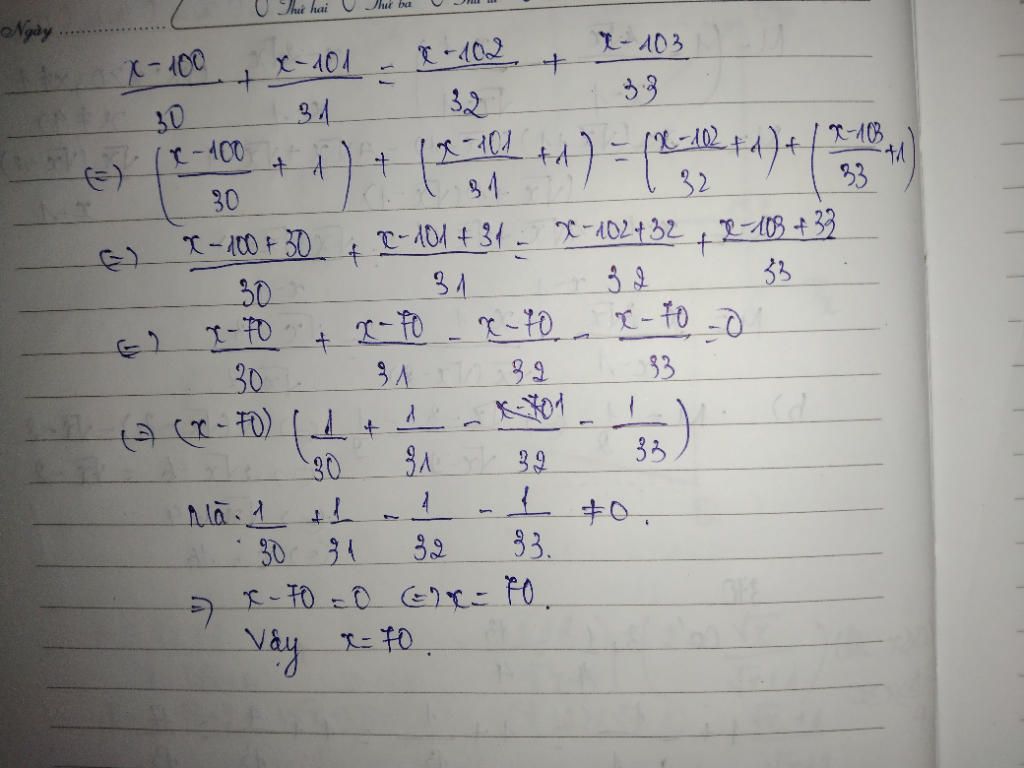 Ngày ........ Thứ hai Thứ ba
x-100/30 + x-101/31 = x-102/32 + x-103/33
(=) (x-100/30 + 1) + (x-101/31 + 1) = (x-102/32 + 1) + (x-103/33 + 1)
(=) x-100+30/30 + x-101+31/31 = x-102+32/32 + x-103+33/33
(=) x-70/30 + x-70/31 - x-70/32 - x-70/33 = 0
(=) (x-70) (1/30 + 1/31 - 1/32 - 1/33)
Mà: 1/30 + 1/31 - 1/32 - 1/33. ≠ 0.
=) x-70 = 0 (=) x = 70.
Vậy x = 70.